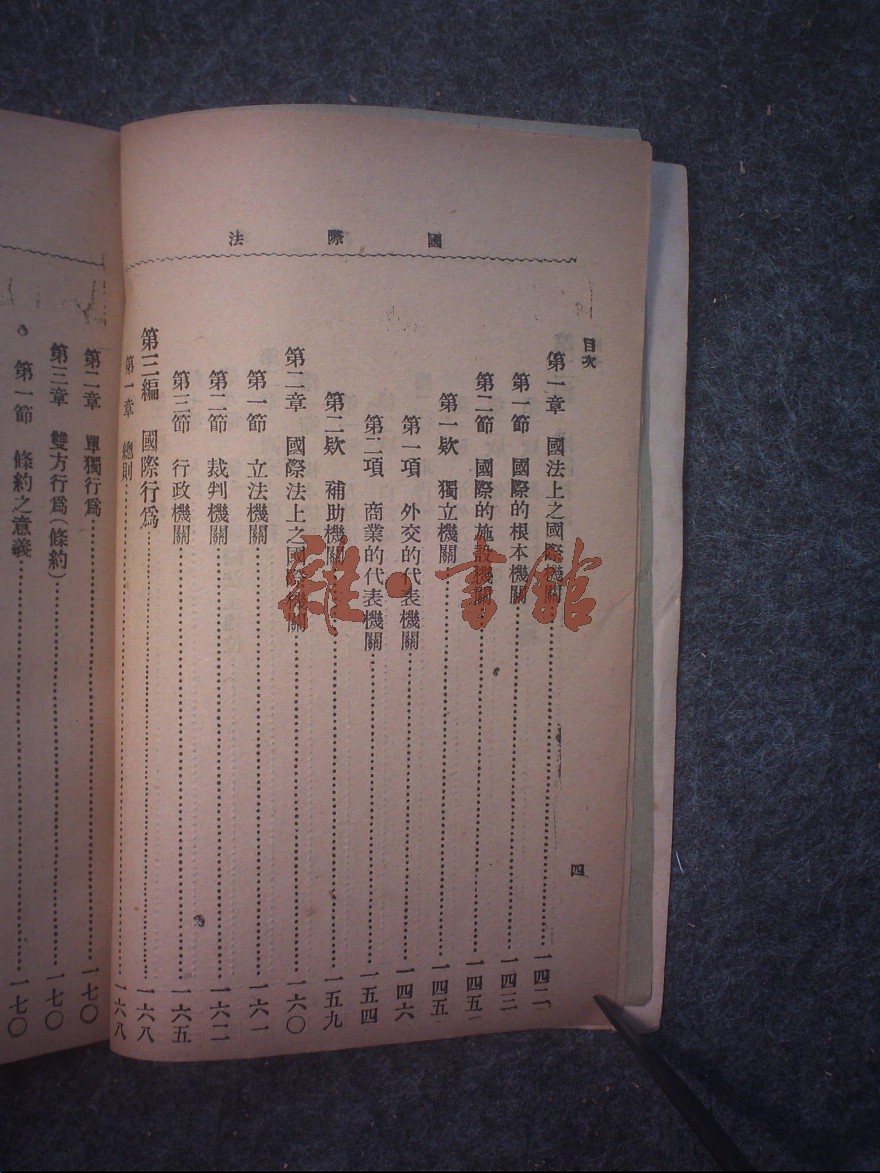 國際法
目次
第一章　國法上之國際機關…一四二
第一節　國際的根本機關…一四三
第二節　國際的施設機關…一四五
第一欵　獨立機關…一四五
第一項　外交的代表機關…一四六
第二項　商業的代表機關…一五四
第二欵　補助機關…一五九
第二章　國際法上之國際機關…一六〇
第一節　立法機關…一六一
第二節　裁判機關…一六二
第三節　行政機關…一六五
第三編　國際行爲…一六八
第一章　總則…一六八
四
第二章　單獨行爲…一七〇
第三章　雙方行爲(條約)…一七〇
第一節　條約之意義…一七〇
雜·書館